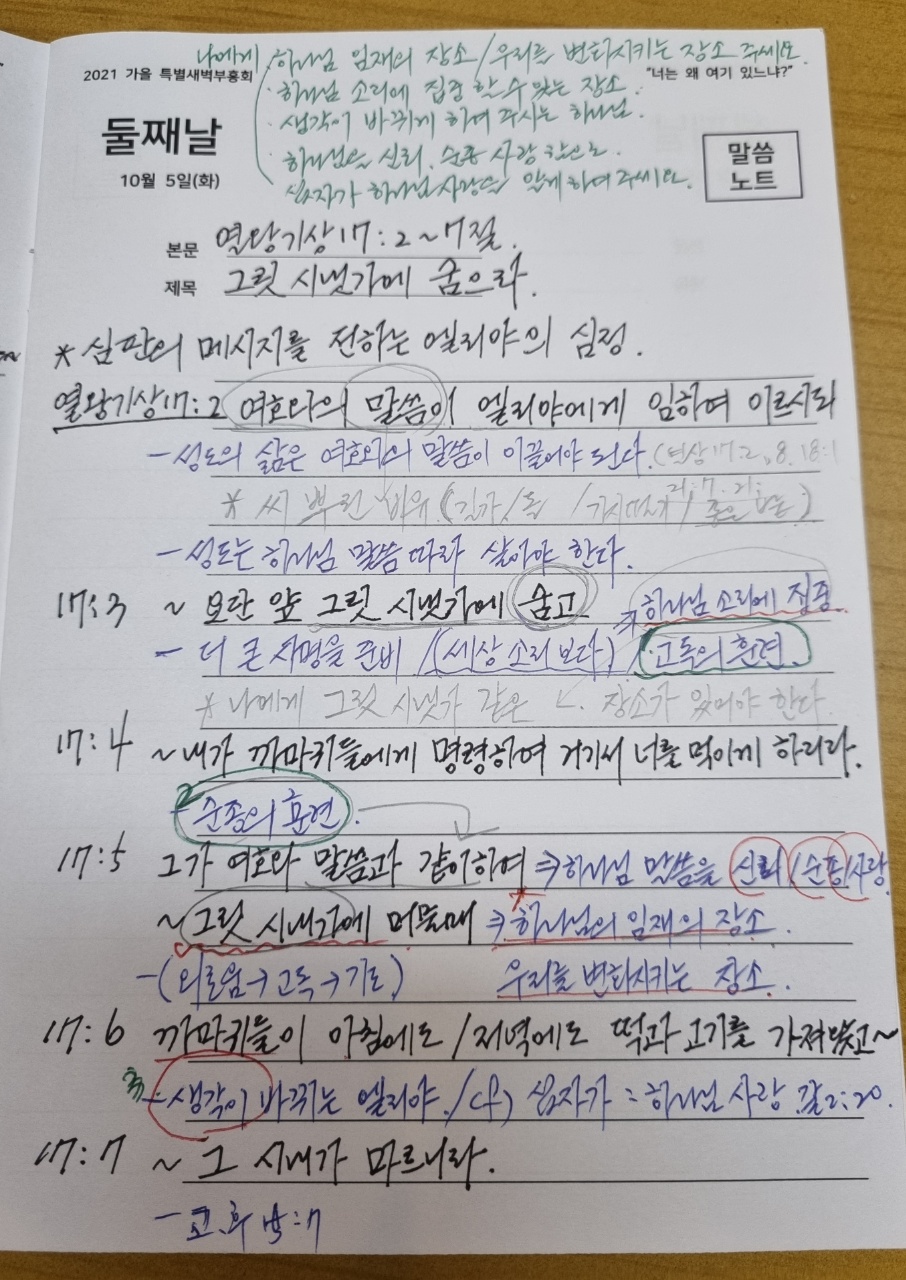 나에게 하나님 임재의 장소 / 우리를 변화시키는 장소 주세요.
2021 가을 특별새벽부흥회
"너는 왜 여기 있느냐?"
· 하나님 소리에 집중 할 수 있는 장소
· 생각이 바뀌게 하여 주시는 하나님.
둘째날
· 하나님을 신뢰. 순종 사랑 함으로.
10월 5일(화)
십자가 하나님 사랑을 알게 하여 주세요.
말씀
노트
본문 열왕기상 17:2~7절.
제목 그릿 시냇가에 숨으라.
* 심판의 메시지를 전하는 엘리야의 심정.
열왕기상 17:2 여호와의 말씀이 엘리야에게 임하여 이르시되
- 성도의 삶은 여호와의 말씀이 이끌어야 된다. (왕상 17:2, 8. 18:1
21:17.
* 씨 뿌린 비유 (길가/돌 /가시떨기/좋은 )
- 성도는 하나님 말씀 따라 살아야 한다.
17:3 ~ 요단 앞 그릿 시냇가에 숨고 → 하나님 소리에 집중
- 더 큰 사명을 준비 / (세상 소리 보다) 고독의 훈련.
* 나에게 그릿 시냇가 같은 장소가 있어야 한다.
17:4 ~ 내가 까마귀들에게 명령하여 거기서 너를 먹이게 하리라.
2 - 순종의 훈련.
17:5 그가 여호와 말씀과 같이하여 ⇒ 하나님 말씀을 신뢰/순종/사랑
~ 그릿 시내가에 머물매 ⇒ 하나님의 임재의 장소.
- (외로움 → 고독 → 기도) 우리를 변화시키는 장소.
17:6 까마귀들이 아침에도 / 저녁에도 떡과 고기를 가져왔고~
3 - 생각이 바뀌는 엘리야. / cf) 십자가 = 하나님 사랑 갈 2:20.
17:7 ~ 그 시내가 마르니라.
- 고.후 5:7